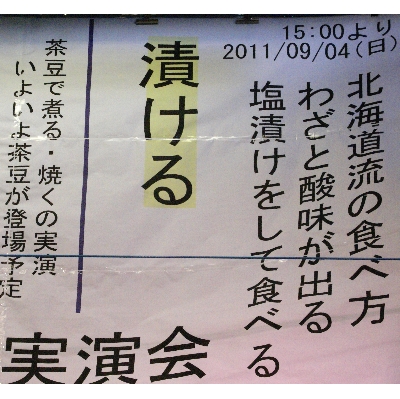 15:00より
2011/09/04(日)
北海道流の食べ方
わざと酸味が出る
塩漬けをして食べる
漬ける
茶豆で煮る・焼くの実演
いよいよ茶豆が登場予定
実演会